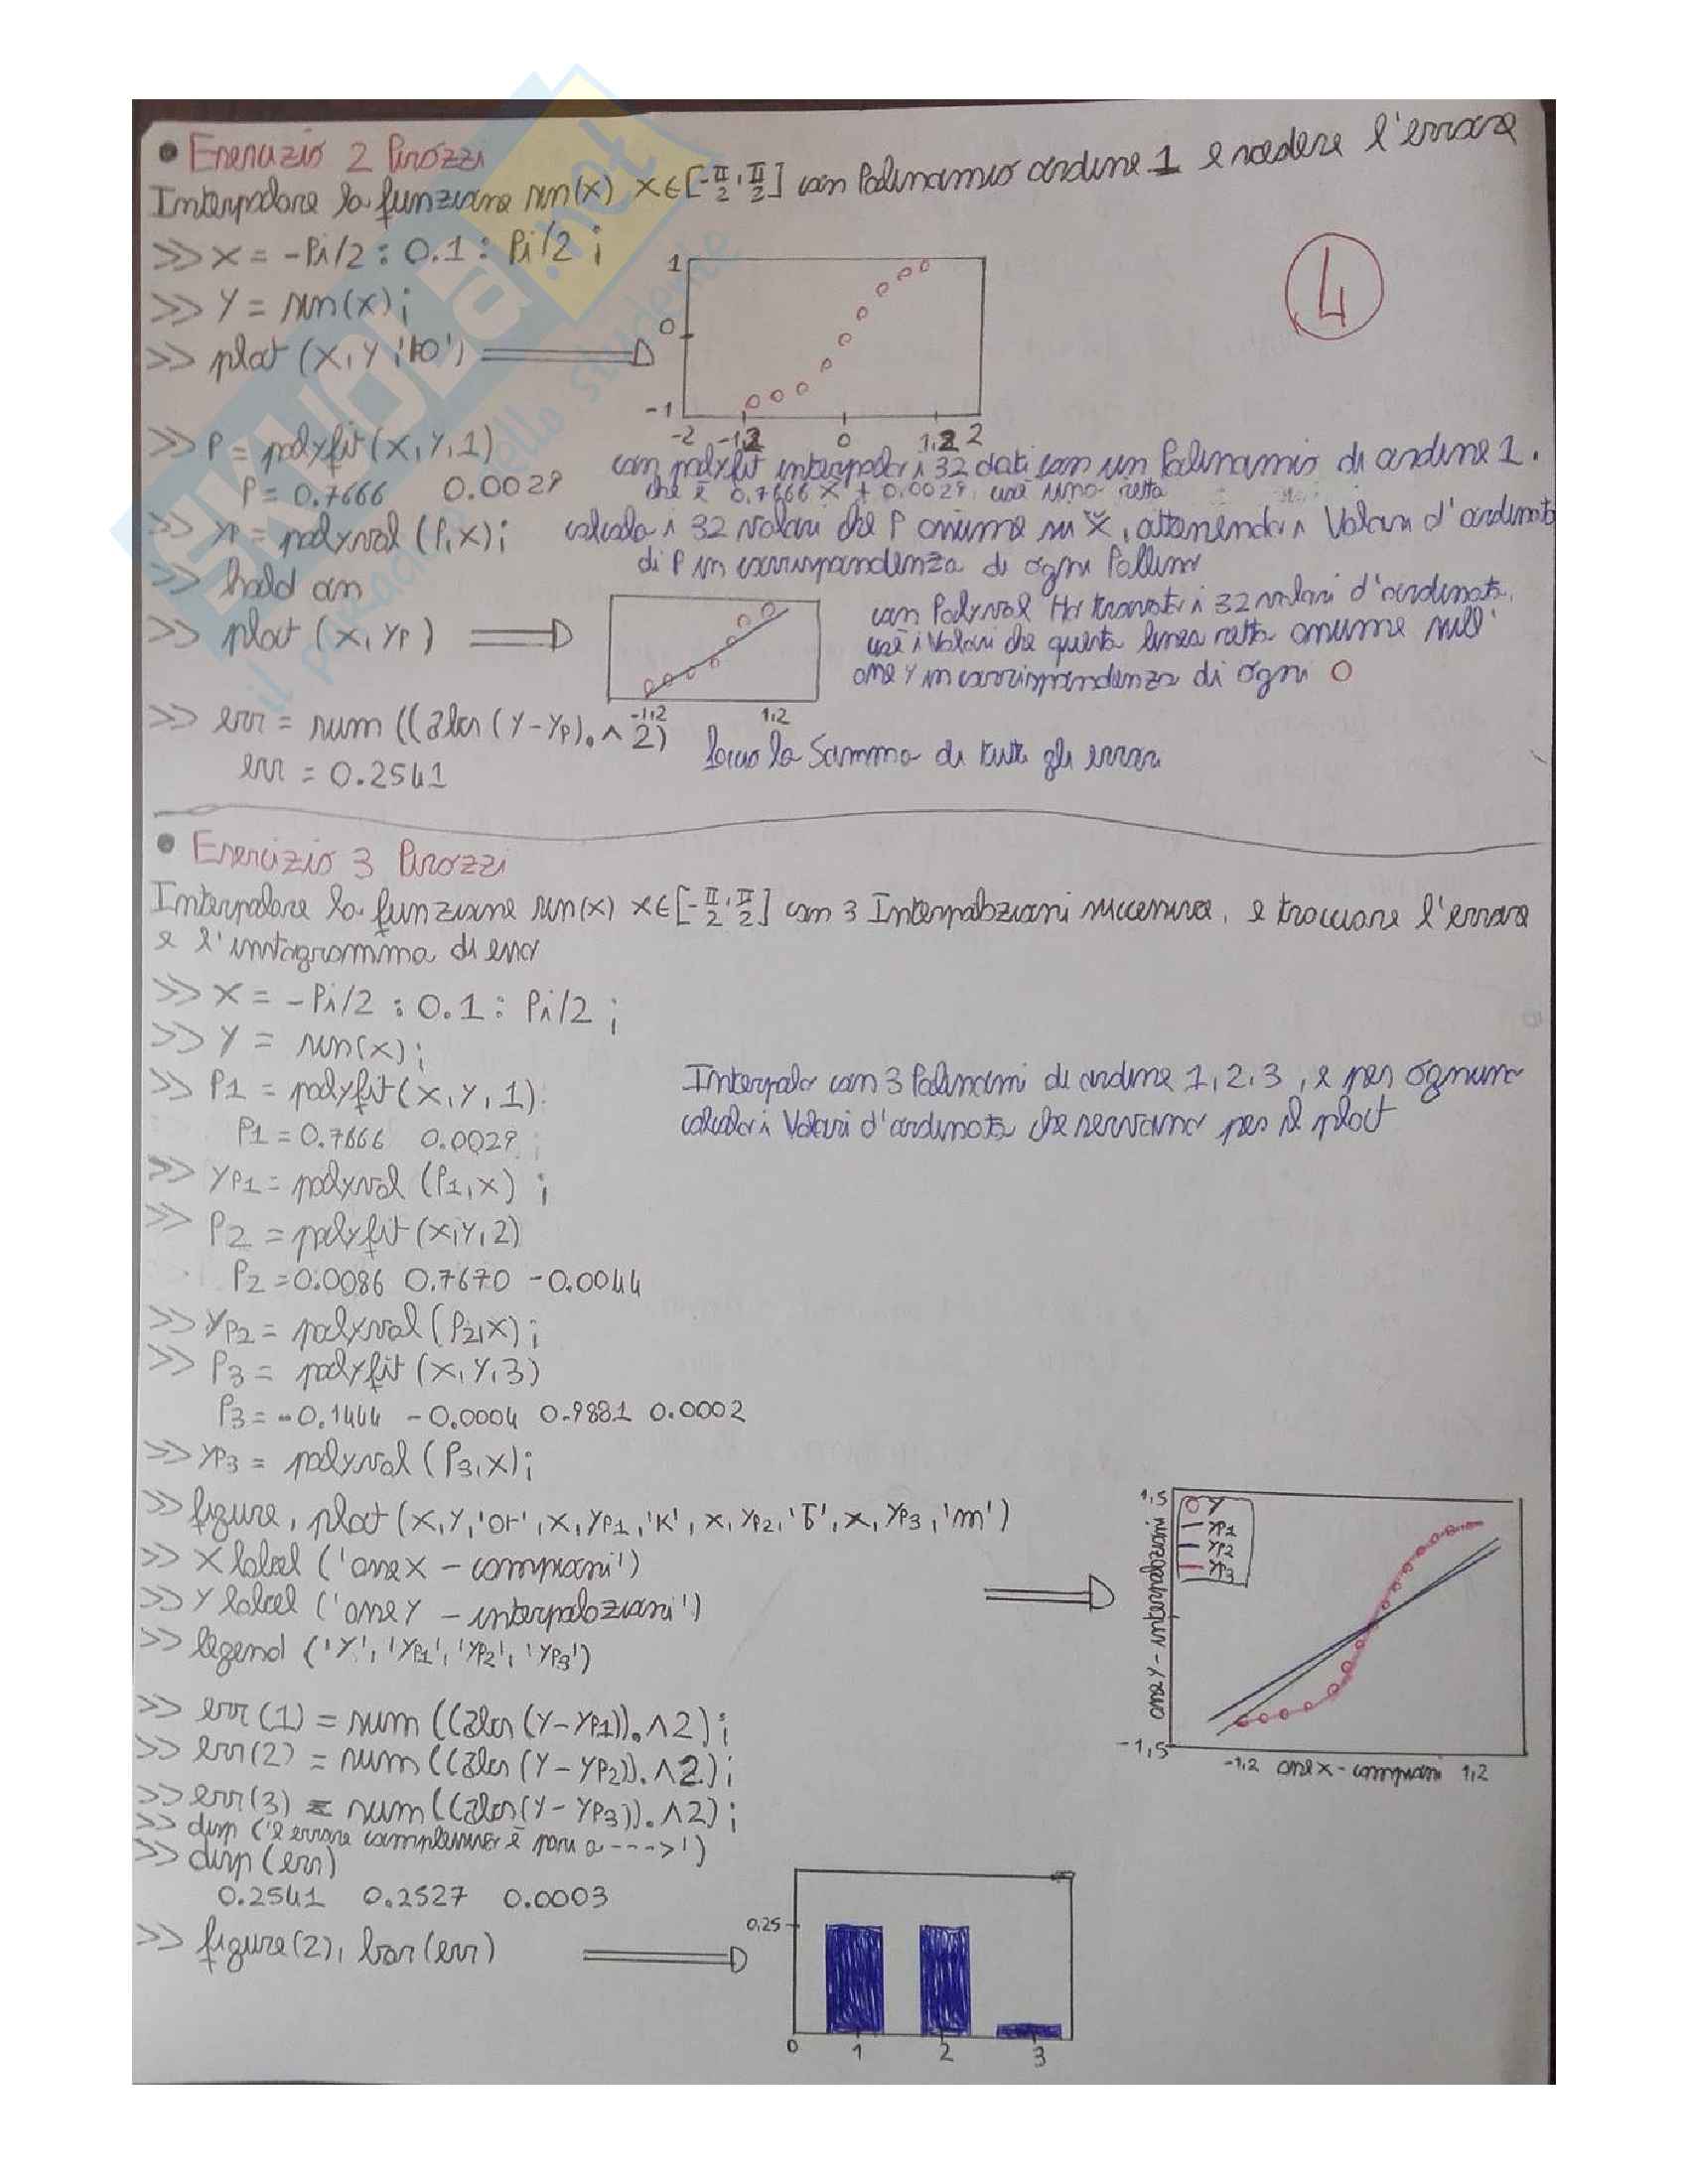 • Esercizio 2 Pirozzi
Interpolare la funzione sin(x) x∈[-π/2, π/2] con Polinomio ordine 1 e vedere l'errore
>> X = -Pi/2 : 0.1 : Pi/2 ;
>> Y = sin(x);
4
>> plot (X, Y, 'ro')
1
0
-1
-2 -1,2 0 1,2 2
>> P = polyfit(X, Y, 1)
P = 0.7666 0.0029
con polyfit interpolo i 32 dati con un Polinomio di ordine 1.
che è 0,7666 X + 0.0029, cioè una retta
>> YP = polyval (P, X);
calcola i 32 valori che P assume su X, ottenendo i Valori d'ordinata
di P in corrispondenza di ogni Pallino
>> hold on
>> plot (X, YP)
-1,2 1,2
con Polyval Ho trovato i 32 valori d'ordinata,
cioè i Valori che questa linea retta assume sull'
asse Y in corrispondenza di ogni O
>> err = sum ((abs (Y-YP).^2)
err = 0.2541
faccio la Somma di tutti gli errori
• Esercizio 3 Pirozzi
Interpolare la funzione sin(x) x∈[-π/2, π/2] con 3 Interpolazioni successive, e tracciare l'errore
e l'instogramma di esso
>> X = -Pi/2 : 0.1 : Pi/2 ;
>> Y = sin(x);
>> P1 = polyfit(X, Y, 1)
P1 = 0.7666 0.0029
Interpolo con 3 Polinomi di ordine 1, 2, 3, e per ognuno
calcolo i Valori d'ordinata che servono per il plot
>> YP1 = polyval (P1, X) ;
>> P2 = polyfit (X, Y, 2)
P2 = 0.0086 0.7670 -0.0044
>> YP2 = polyval (P2, X) ;
>> P3 = polyfit (X, Y, 3)
P3 = -0.1444 -0.0004 0.9881 0.0002
>> YP3 = polyval (P3, X) ;
>> figure, plot (X, Y, 'or', X, YP1, 'K', X, YP2, 'b', X, YP3, 'm')
>> Xlabel ('asse X - campioni')
>> Ylabel ('asse Y - interpolazioni')
>> legend ('Y', 'YP1', 'YP2', 'YP3')
1,5
Y
YP1
YP2
YP3
asse Y - interpolazioni
-1,5
-1,2 asse x - campioni 1,2
>> err(1) = sum ((abs (Y-YP1)).^2) ;
>> err(2) = sum ((abs (Y-YP2)).^2) ;
>> err(3) = sum ((abs (Y-YP3)).^2) ;
>> disp ('l errore complessivo è pari a --->')
>> disp (err)
0.2541 0.2527 0.0003
>> figure(2), bar (err)
0,25
0 1 2 3
SKUOLA.net
il paradiso dello studente